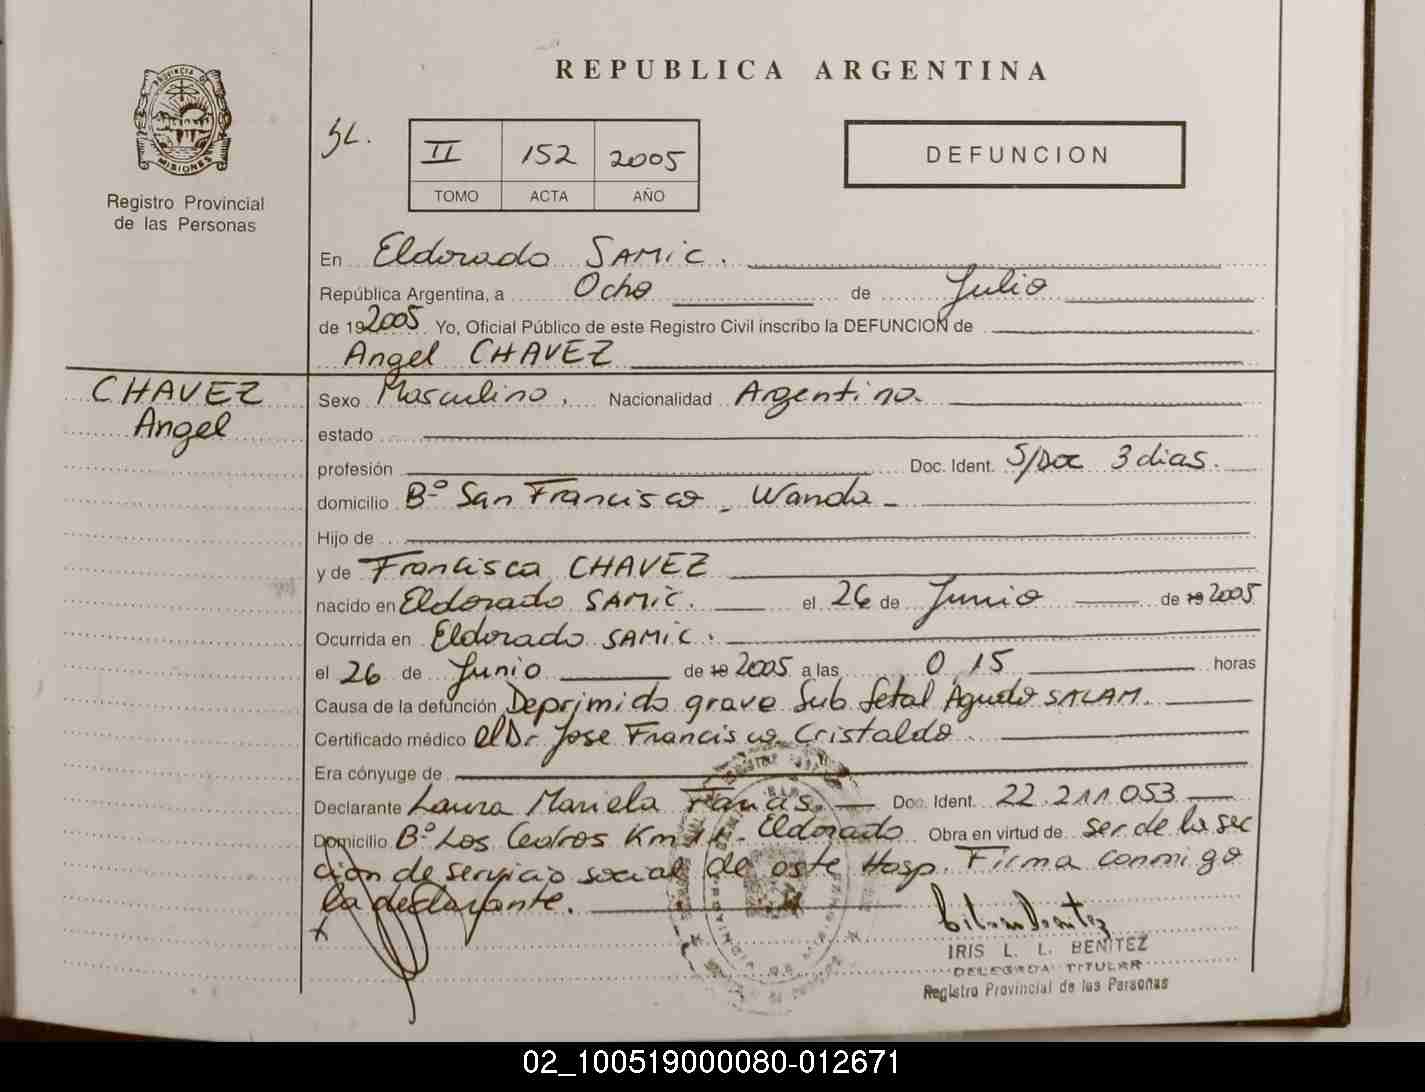 REPUBLICA ARGENTINA
PROVINCIA DE
MISIONES
Registro Provincial
de las Personas
II 152 2005
TOMO ACTA AÑO
DEFUNCION
En Eldorado SAMIC.
República Argentina, a Ocho de Julio
de 192005 Yo, Oficial Público de este Registro Civil inscribo la DEFUNCION de
Angel CHAVEZ
CHAVEZ
Angel
Sexo Masculino. Nacionalidad Argentino.
estado
profesión Doc. Ident. S/Doc 3 dias.
domicilio Bº San Francisco - Wanda -
Hijo de
y de Francisca CHAVEZ
nacido en Eldorado SAMIC. el 26 de Junio de 19 2005
Ocurrida en Eldorado SAMIC.
el 26 de Junio de 19 2005 a las 0 15 horas
Causa de la defunción Deprimido grave Sub fetal Agudo SALAM.
Certificado médico el Dr Jose Francisco Cristaldo
Era cónyuge de
Declarante Laura Mariela Doc. Ident. 22.211.053
Domicilio Bº Los Cedros Km 11 - Eldorado Obra en virtud de ser de la sec
ción de servicio social de este Hosp. Firma conmigo
la declarante.
IRIS L. L. BENITEZ
DELEGADA TITULAR
Registro Provincial de las Personas
02_100519000080-012671